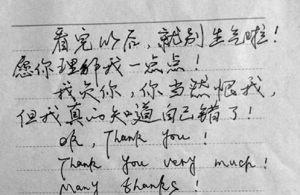 看完以后，就别生气啦！
愿你理解我一点点！
我欠你，你当然恨我，
但我真的知道自己错了！
ok, Thank you!
Thank you very much!
Many thanks!